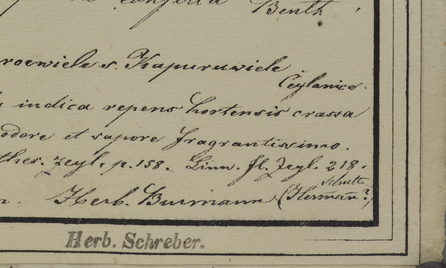 Benth.
roewiele s. Kapuruwiele.
Ceylanice.
indica repens hortensis crassa
odore et sapore fragrantissimo.
thes. zeyl. p. 158. Linn. fl. Zeyl. 218.
Herb. Burmann (Herman?)
Herb. Schreber.